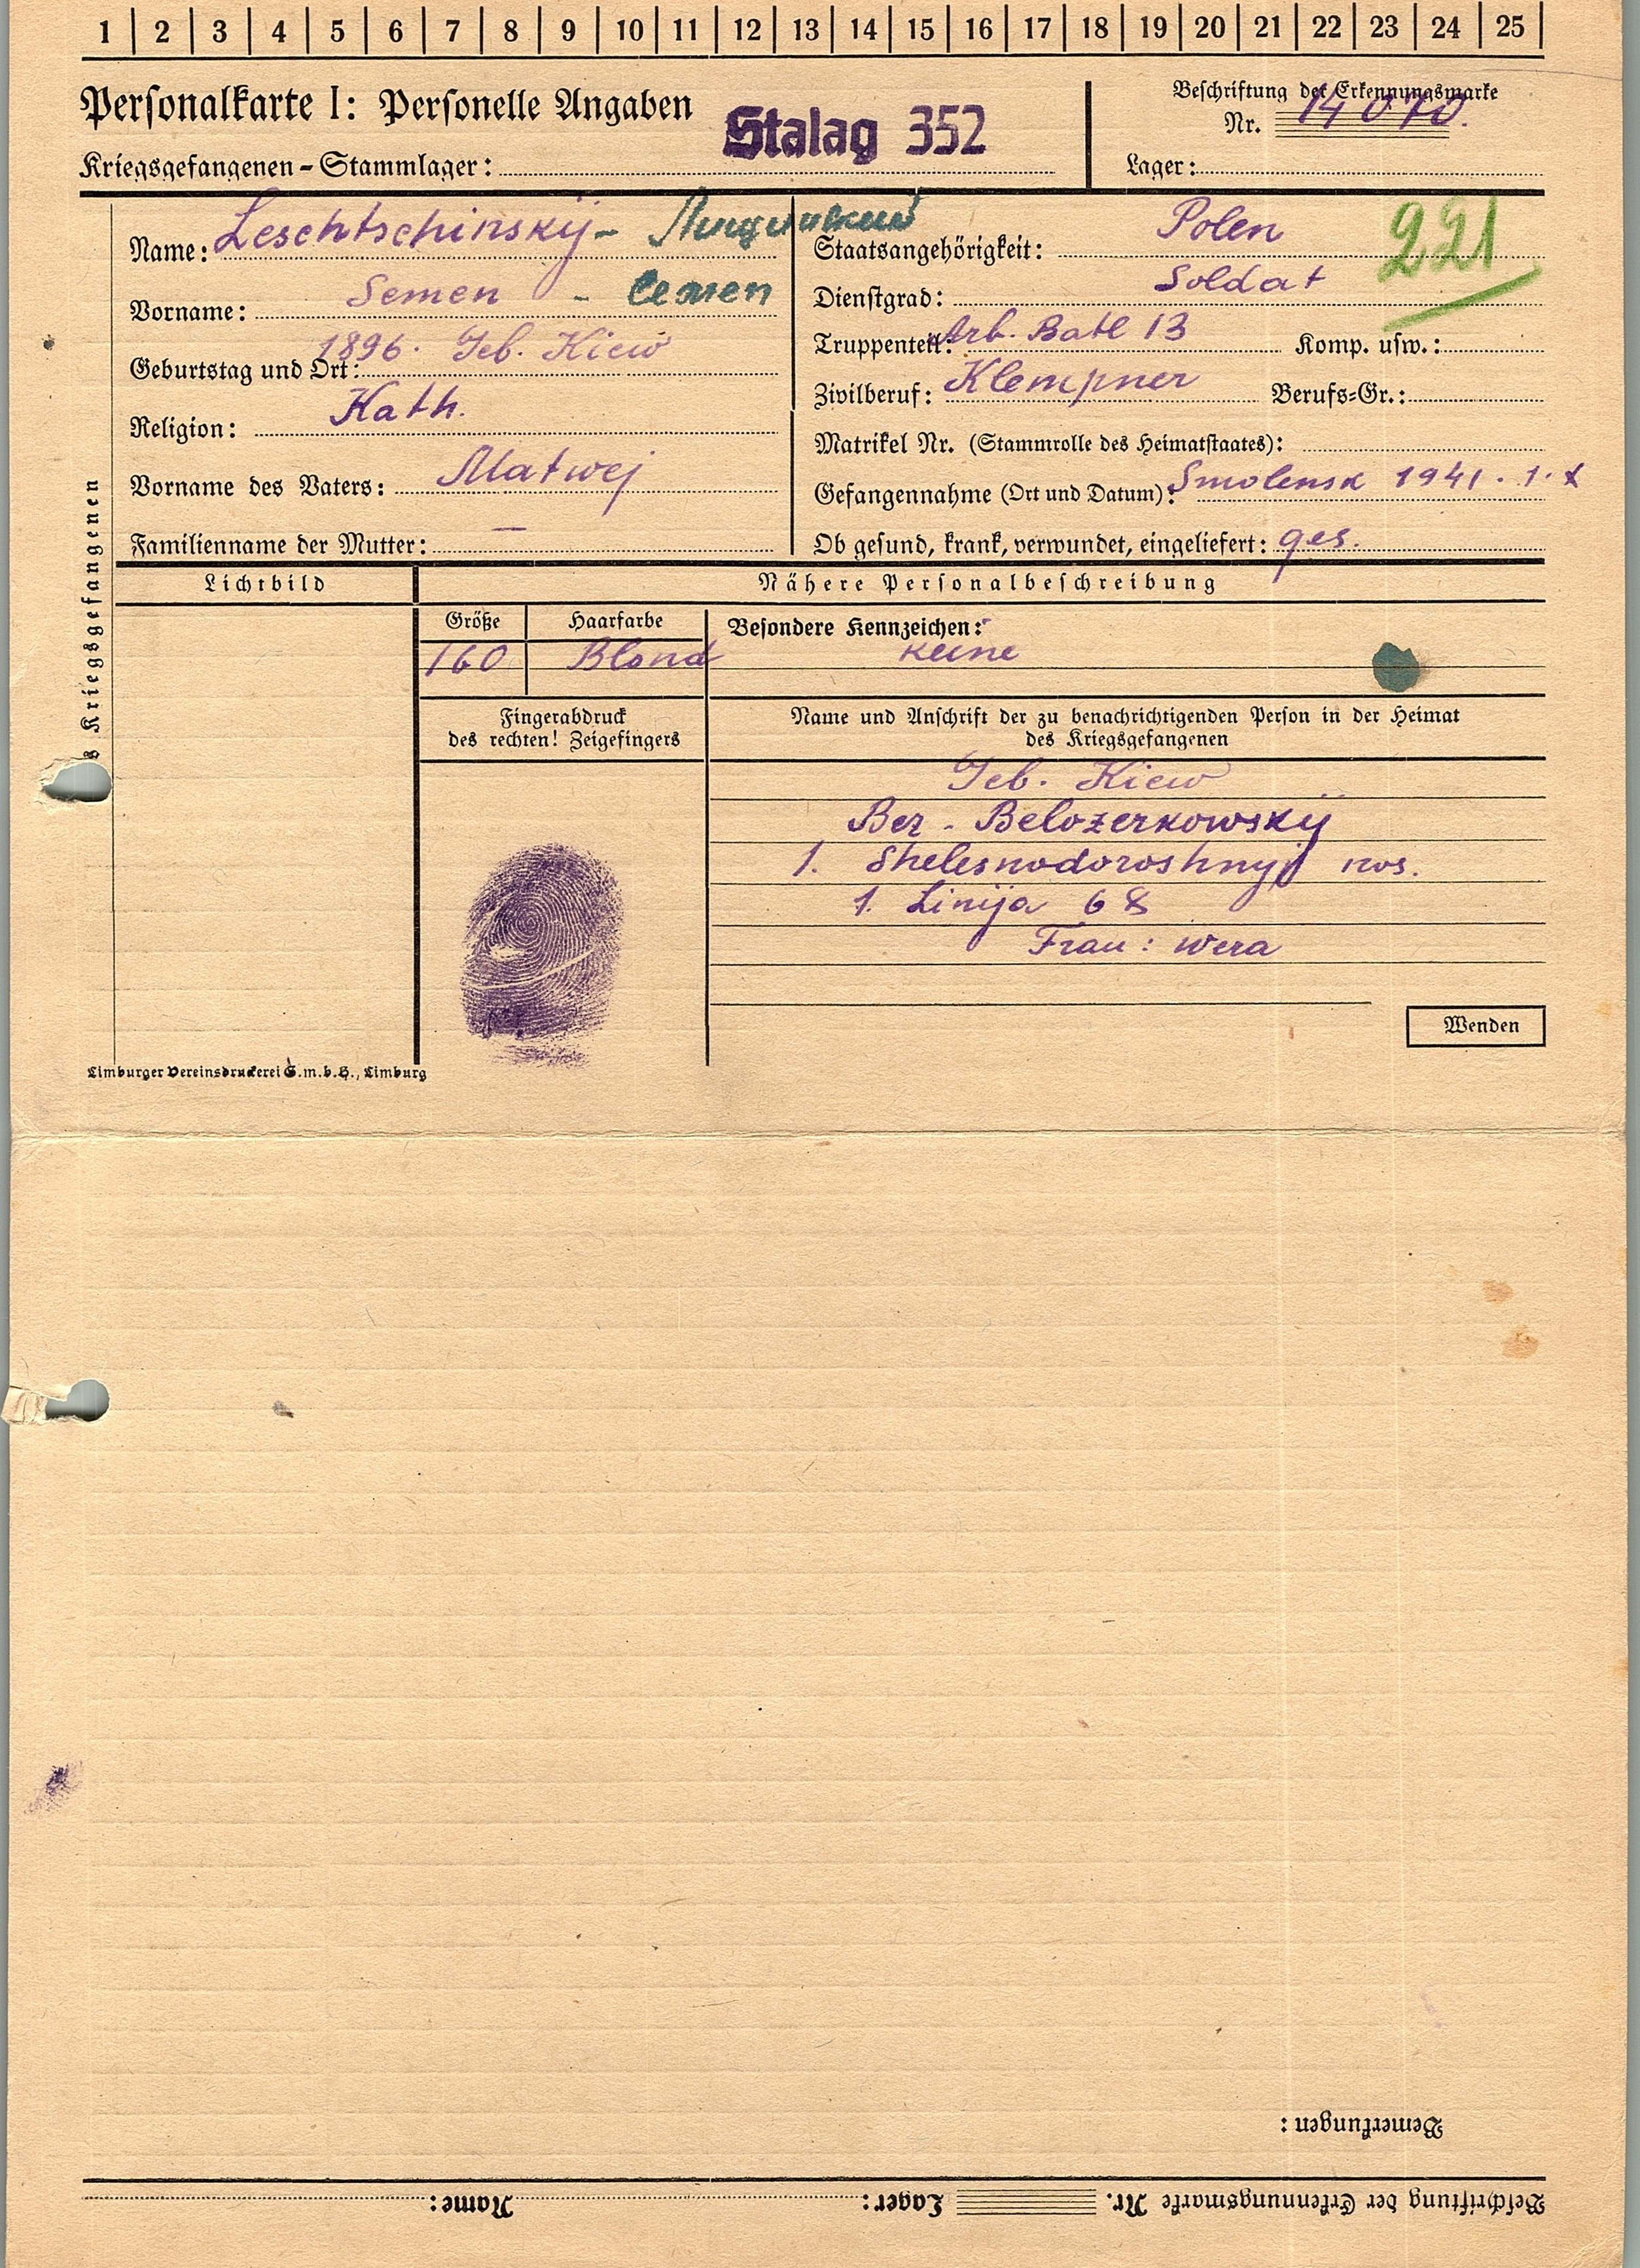 1 | 2 | 3 | 4 | 5 | 6 | 7 | 8 | 9 | 10 | 11 | 12 | 13 | 14 | 15 | 16 | 17 | 18 | 19 | 20 | 21 | 22 | 23 | 24 | 25
Personalkarte I: Personelle Angaben
Stalag 352
Kriegsgefangenen-Stammlager:
Beschriftung der Erkennungsmarke
Nr. 14070.
Lager:
Name: Leschtschinskij -
Vorname: Semen - Семен
Geburtstag und Ort: 1896. Geb. Kiew
Religion: Kath.
Vorname des Vaters: Matwej
Familienname der Mutter: —
Staatsangehörigkeit: Polen
221
Dienstgrad: Soldat
Truppenteil: Arb. Batl 13 Komp. usw.:
Zivilberuf: Klempner Berufs-Gr.:
Matrikel Nr. (Stammrolle des Heimatstaates):
Gefangennahme (Ort und Datum): Smolensk 1941. 1. X
Ob gesund, krank, verwundet, eingeliefert: ges.
s Kriegsgefangenen
Lichtbild
Nähere Personalbeschreibung
Größe Haarfarbe Besondere Kennzeichen:
160 Blond keine
Fingerabdruck
des rechten! Zeigefingers
Name und Anschrift der zu benachrichtigenden Person in der Heimat
des Kriegsgefangenen
Geb. Kiew
Bez - Belozerkowskij
1. Shelesnodoroshnyj pos.
1. Linija 68
Frau: Wera
Wenden
Limburger Vereinsdruckerei G.m.b.H., Limburg
Bemerkungen:
Beschriftung der Erkennungsmarke Nr. Lager: Name: